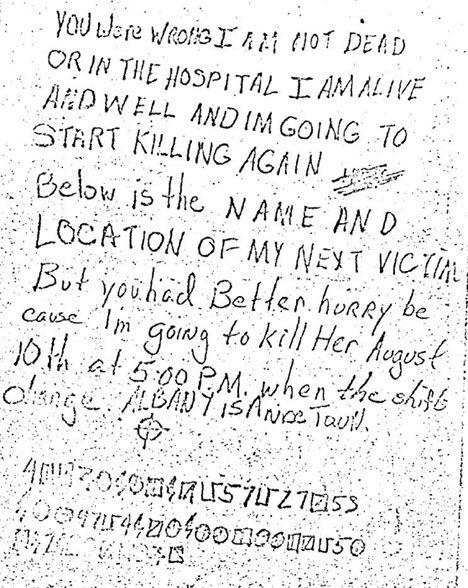 YOU Were WRONG I AM NOT DEAD
OR IN THE HOSPITAL I AM ALIVE
AND WELL AND IM GOING TO
START KILLING AGAIN
Below is the NAME AND
LOCATION OF MY NEXT VICTIM
But you had Better hurry be
cause I'm going to kill Her August
10th at 5:00 P.M. when the shift
change. ALBANY IS A Nice Town.